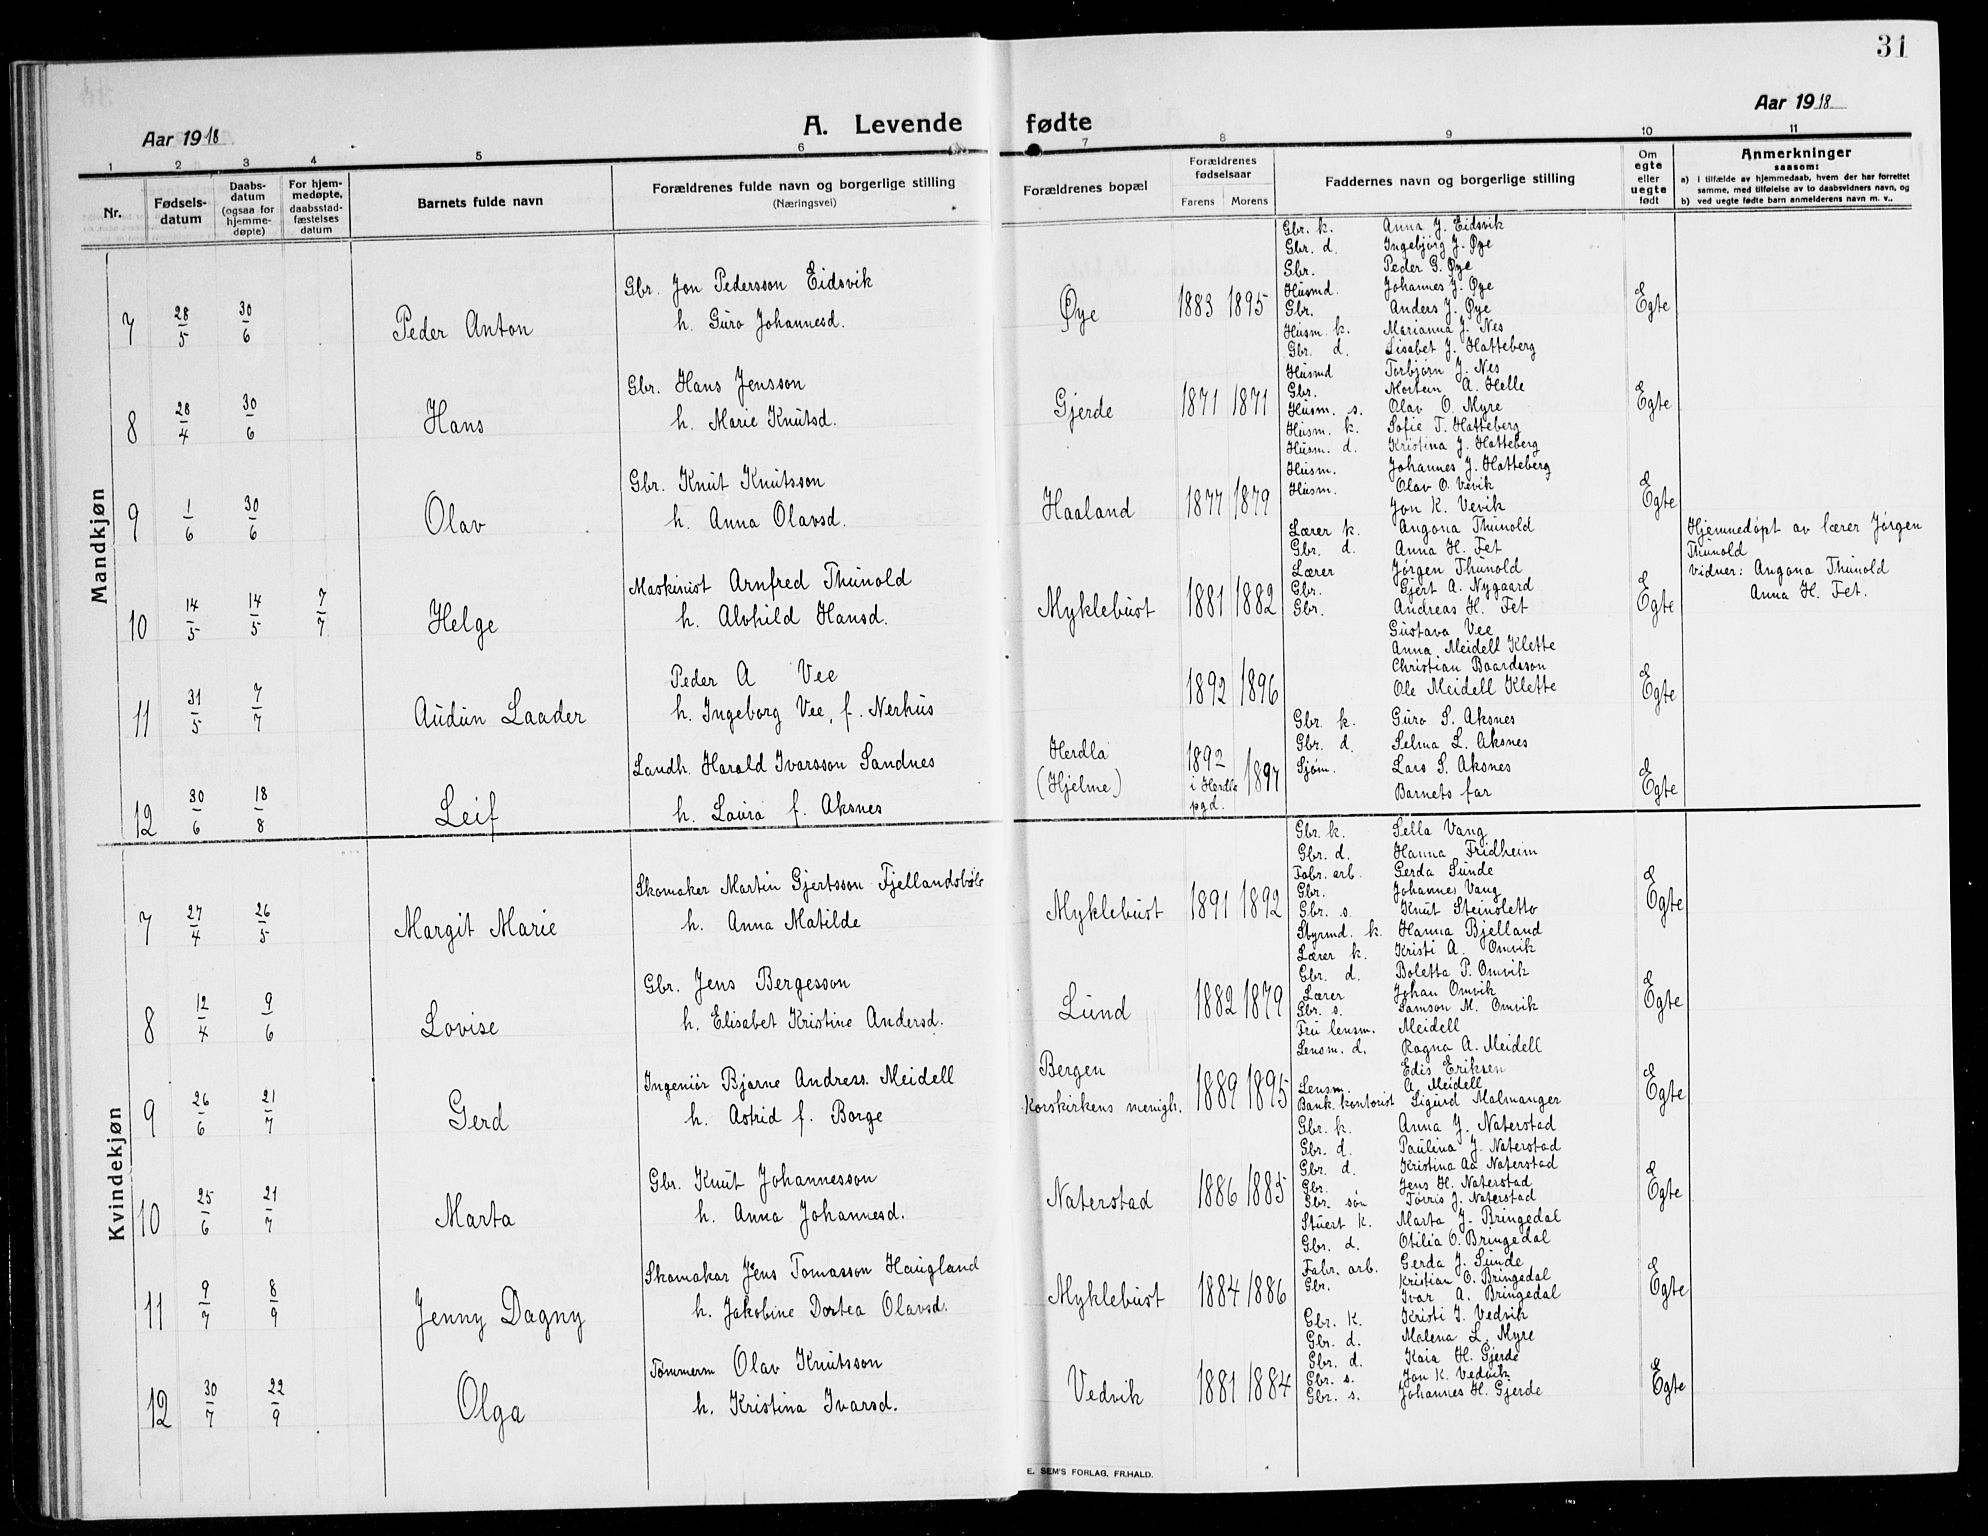 31
Aar 1918
A. Levende fødte
Aar 1918
1 2 3 4 5 6 7 8 9 10 11
Nr.
Fødsels-
datum
Daabs-
datum
(ogsaa for
hjemme-
døpte)
For hjem-
medøpte,
daabsstad-
fæstelses
datum
Barnets fulde navn
Forældrenes fulde navn og borgerlige stilling
(Næringsvei)
Forældrenes bopæl
Forældrenes
fødselsaar
Farens Morens
Faddernes navn og borgerlige stilling
Om
egte
eller
uegte
født
Anmerkninger
saasom:
a) i tilfælde av hjemmedaab, hvem der har forrettet
samme, med tilføielse av to daabsvidners navn, og
b) ved uegte fødte barn anmelderens navn m. v..
Mandkjøn
7 28/5 30/6 Peder Anton
Gbr. Jon Pedersson Eidsvik
h. Guro Johannesd.
Øye 1883 1895
Gbr. k. Anna J. Eidsvik
Gbr. d. Ingebjørg J. Øye
Gbr. Peder G. Øye
Husmd. Johannes J. Øye
Gbr. Anders J. Øye
Egte
8 28/4 30/6 Hans
Gbr. Hans Jensson
h. Marie Knutsd.
Gjerde 1871 1871
Husm. k. Marianna J. Nes
Gbr. d. Lisabet J. Hatteberg
Husmd Torbjørn J. Nes
Gbr. Mortein A. Helle
Husm. s. Olav O. Myre
Egte
9 1/6 30/6 Olav
Gbr. Knut Knutsson
h. Anna Olavsd.
Haaland 1877 1879
Husm. k. Sofie T. Hatteberg
Husm. d. Kristina J. Hatteberg
Husm. Johannes J. Hatteberg
Husm. Olav O. Vevik
Jon K. Vevik
Egte
10 14/5 14/5 7/7 Helge
Maskinist Arnfred Thunold
h. Alvhild Hansd.
Myklebust 1881 1882
Lærer k. Angona Thunold
Gbr. d. Anna H. Fet
Lærer Jørgen Thunold
Gbr. Gjert A. Nygaard
Gbr. Andreas H. Fet
Egte
Hjemmedøpt av lærer Jørgen
Thunold
Vidner: Angona Thunold
Anna H. Fet.
11 31/5 7/7 Audun Laader
Peder A Vee
h. Ingeborg Vee, f. Nerhus
1892 1896
Gustava Vee
Anna Meidell Klette
Christian Baardsson
Ole Meidell Klette
Egte
12 30/6 18/8 Leif
Landh. Harald Ivarsson Sandnes
h. Laura f. Aksnes
Herdla
(Hjelme)
1892
i Herdla
pgd.
1897
Gbr. k. Guro S. Aksnes
Gbr. d. Selma L. Aksnes
Sjøm. Lars S. Aksnes
Barnets far
Egte
Kvindekjøn
7 27/4 26/5 Margit Marie
Skomaker Martin Gjertsson Fjellandsbø
h. Anna Matilde
Myklebust 1891 1892
Gbr. k. Sella Vang
Gbr. d. Hanna Fridheim
Fabr. arb. Gerda Sunde
Gbr. Johannes Vang
Gbr. s. Knut Steinsletto
Egte
8 12/4 9/6 Lovise
Gbr. Jens Bergesson
h. Elisabet Kristine Andersd.
Lund 1882 1879
Styrmd. k. Hanna Bjelland
Lærer k. Kristi A. Omvik
Gbr. d. Boletta P. Omvik
Lærer Johan Omvik
Gbr. s. Samson M. Omvik
Egte
9 26/6 21/7 Gerd
Ingeniør Bjarne Andress. Meidell
h. Astrid f. Borge
Bergen
Korskirkens menigh.
1889 1895
Fru lensm. Meidell
Lensm. d. Ragna A. Meidell
Edis Eriksen
Lensm. A. Meidell
Bank. kontorist Sigurd Malmanger
Egte
10 25/6 21/7 Marta
Gbr. Knut Johannesson
h. Anna Johannesd.
Naterstad 1886 1885
Gbr. k. Anna J. Naterstad
Gbr. d. Paulina J. Naterstad
Gbr. d. Kristina Aa Naterstad
Gbr. Jens H. Naterstad
Gbr. søn Torris J. Naterstad
Egte
11 9/7 8/9 Jenny Dagny
Skomakar Jens Tomasson Haugland
h. Jakobine Dortea Olavsd.
Myklebust 1884 1886
Stuert k. Marta J. Bringedal
Gbr. d. Otilia O. Bringedal
Fabr. arb. Gerda J. Sunde
Gbr. Kristian O. Bringedal
Ivar A. Bringedal
Egte
12 30/7 22/9 Olga
Tømmerm Olav Knutsson
h. Kristina Ivarsd.
Vedvik 1881 1884
Gbr. K. Kristi I. Vedvik
Gbr. d. Malena L. Myre
Gbr. d. Kaia H. Gjerde
Gbr. s. Jon K. Vedvik
Gbr. s. Johannes H. Gjerde
Egte
E. SEM'S FORLAG, FR.HALD.